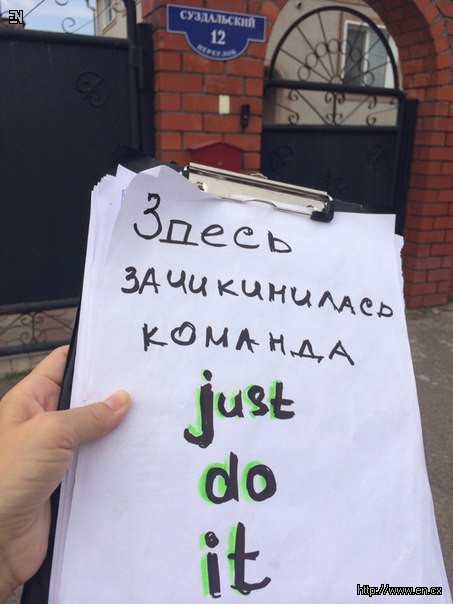 EN
СУЗДАЛЬСКИЙ
12
ПЕРЕУЛОК
Здесь
ЗАЧИКИНИЛАСЬ
КОМАНДА
just
do
it
http://www.en.cx